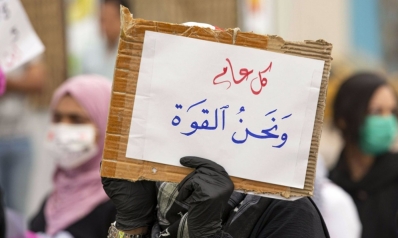 كل عام
ونحنُ ٱلقوة